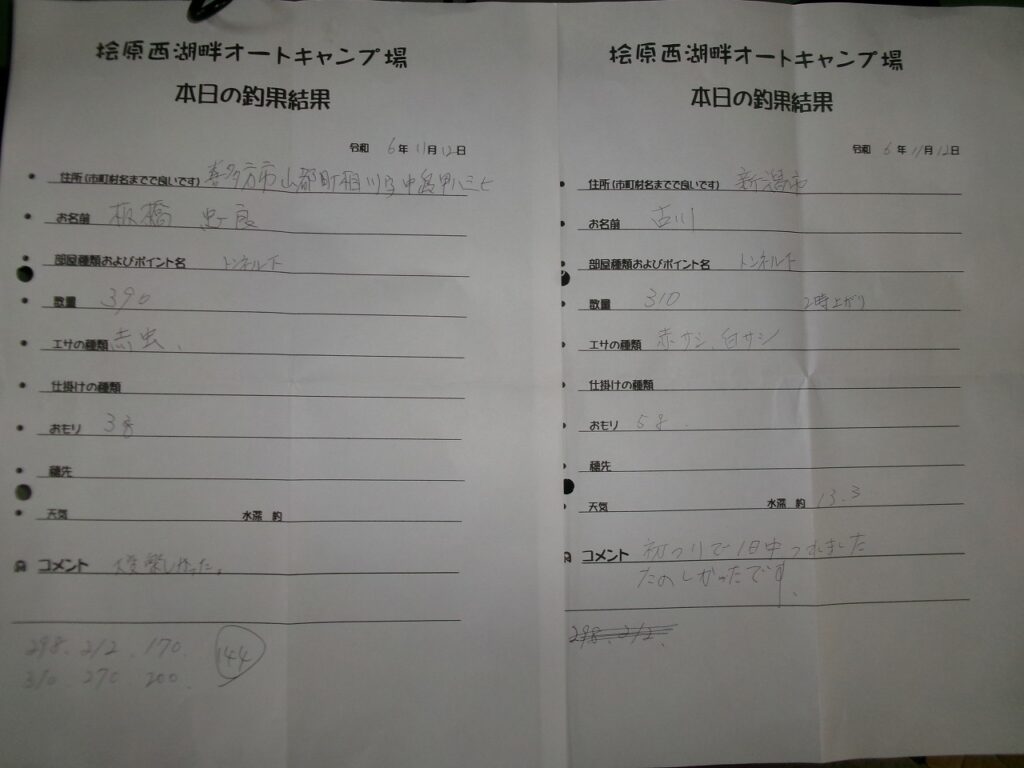 桧原西湖畔オートキャンプ場
本日の釣果結果
令和 6年 11月 12日
住所(市町村名までで良いです) 喜多方市山都町相川
お名前 板橋
部屋種類およびポイント名 トンネル下
数量 390
エサの種類 赤虫、
仕掛けの種類
おもり 3g
穂先
天気 水深 約
コメント 大変楽しかった。
298、212、170、
310 270 200、
144
桧原西湖畔オートキャンプ場
本日の釣果結果
令和 6年 11月 12日
住所(市町村名までで良いです) 新潟市
お名前 古川
部屋種類およびポイント名 トンネル下
数量 310 2時上がり
エサの種類 赤サシ、白サシ
仕掛けの種類
おもり 5g
穂先
天気 水深 約 13.3
コメント 初つりで1日中つれました
たのしかったです
298、212、